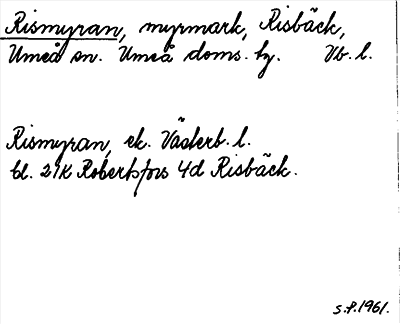 Rismyran, myrmark, Risbäck,
Umeå sn. Umeå doms. hg. Vb. l.
Rismyran, ek. Västerb. l.
bl. 21K Robertsfors 4d Risbäck.
S.P. 1961.